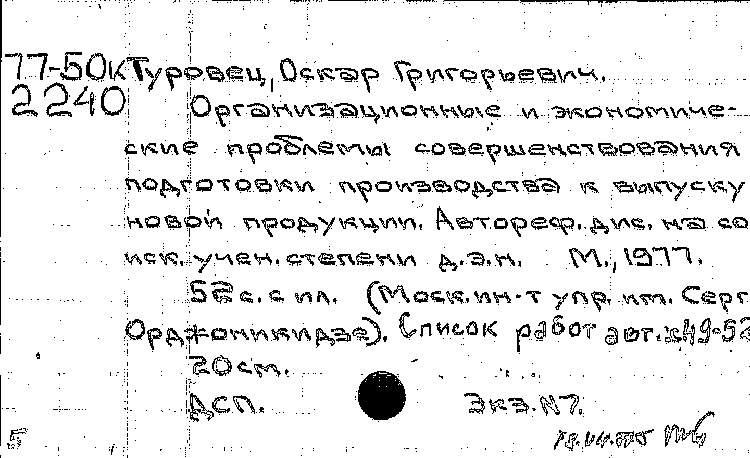 77-50к Туровец, Оскар Григорьевич.
2240 Организационные и экономиче-
ские проблемы совершенствования
подготовки производства к выпуску
новой продукции. Автореф. дис. на со
иск. учен. степени д.э.н. М., 1977.
52 с. с ил. (Моск. ин-т упр. им. Серг
Орджоникидзе). Список работ авт.: с49-52
20см.
ДСП. Экз. N7.
5